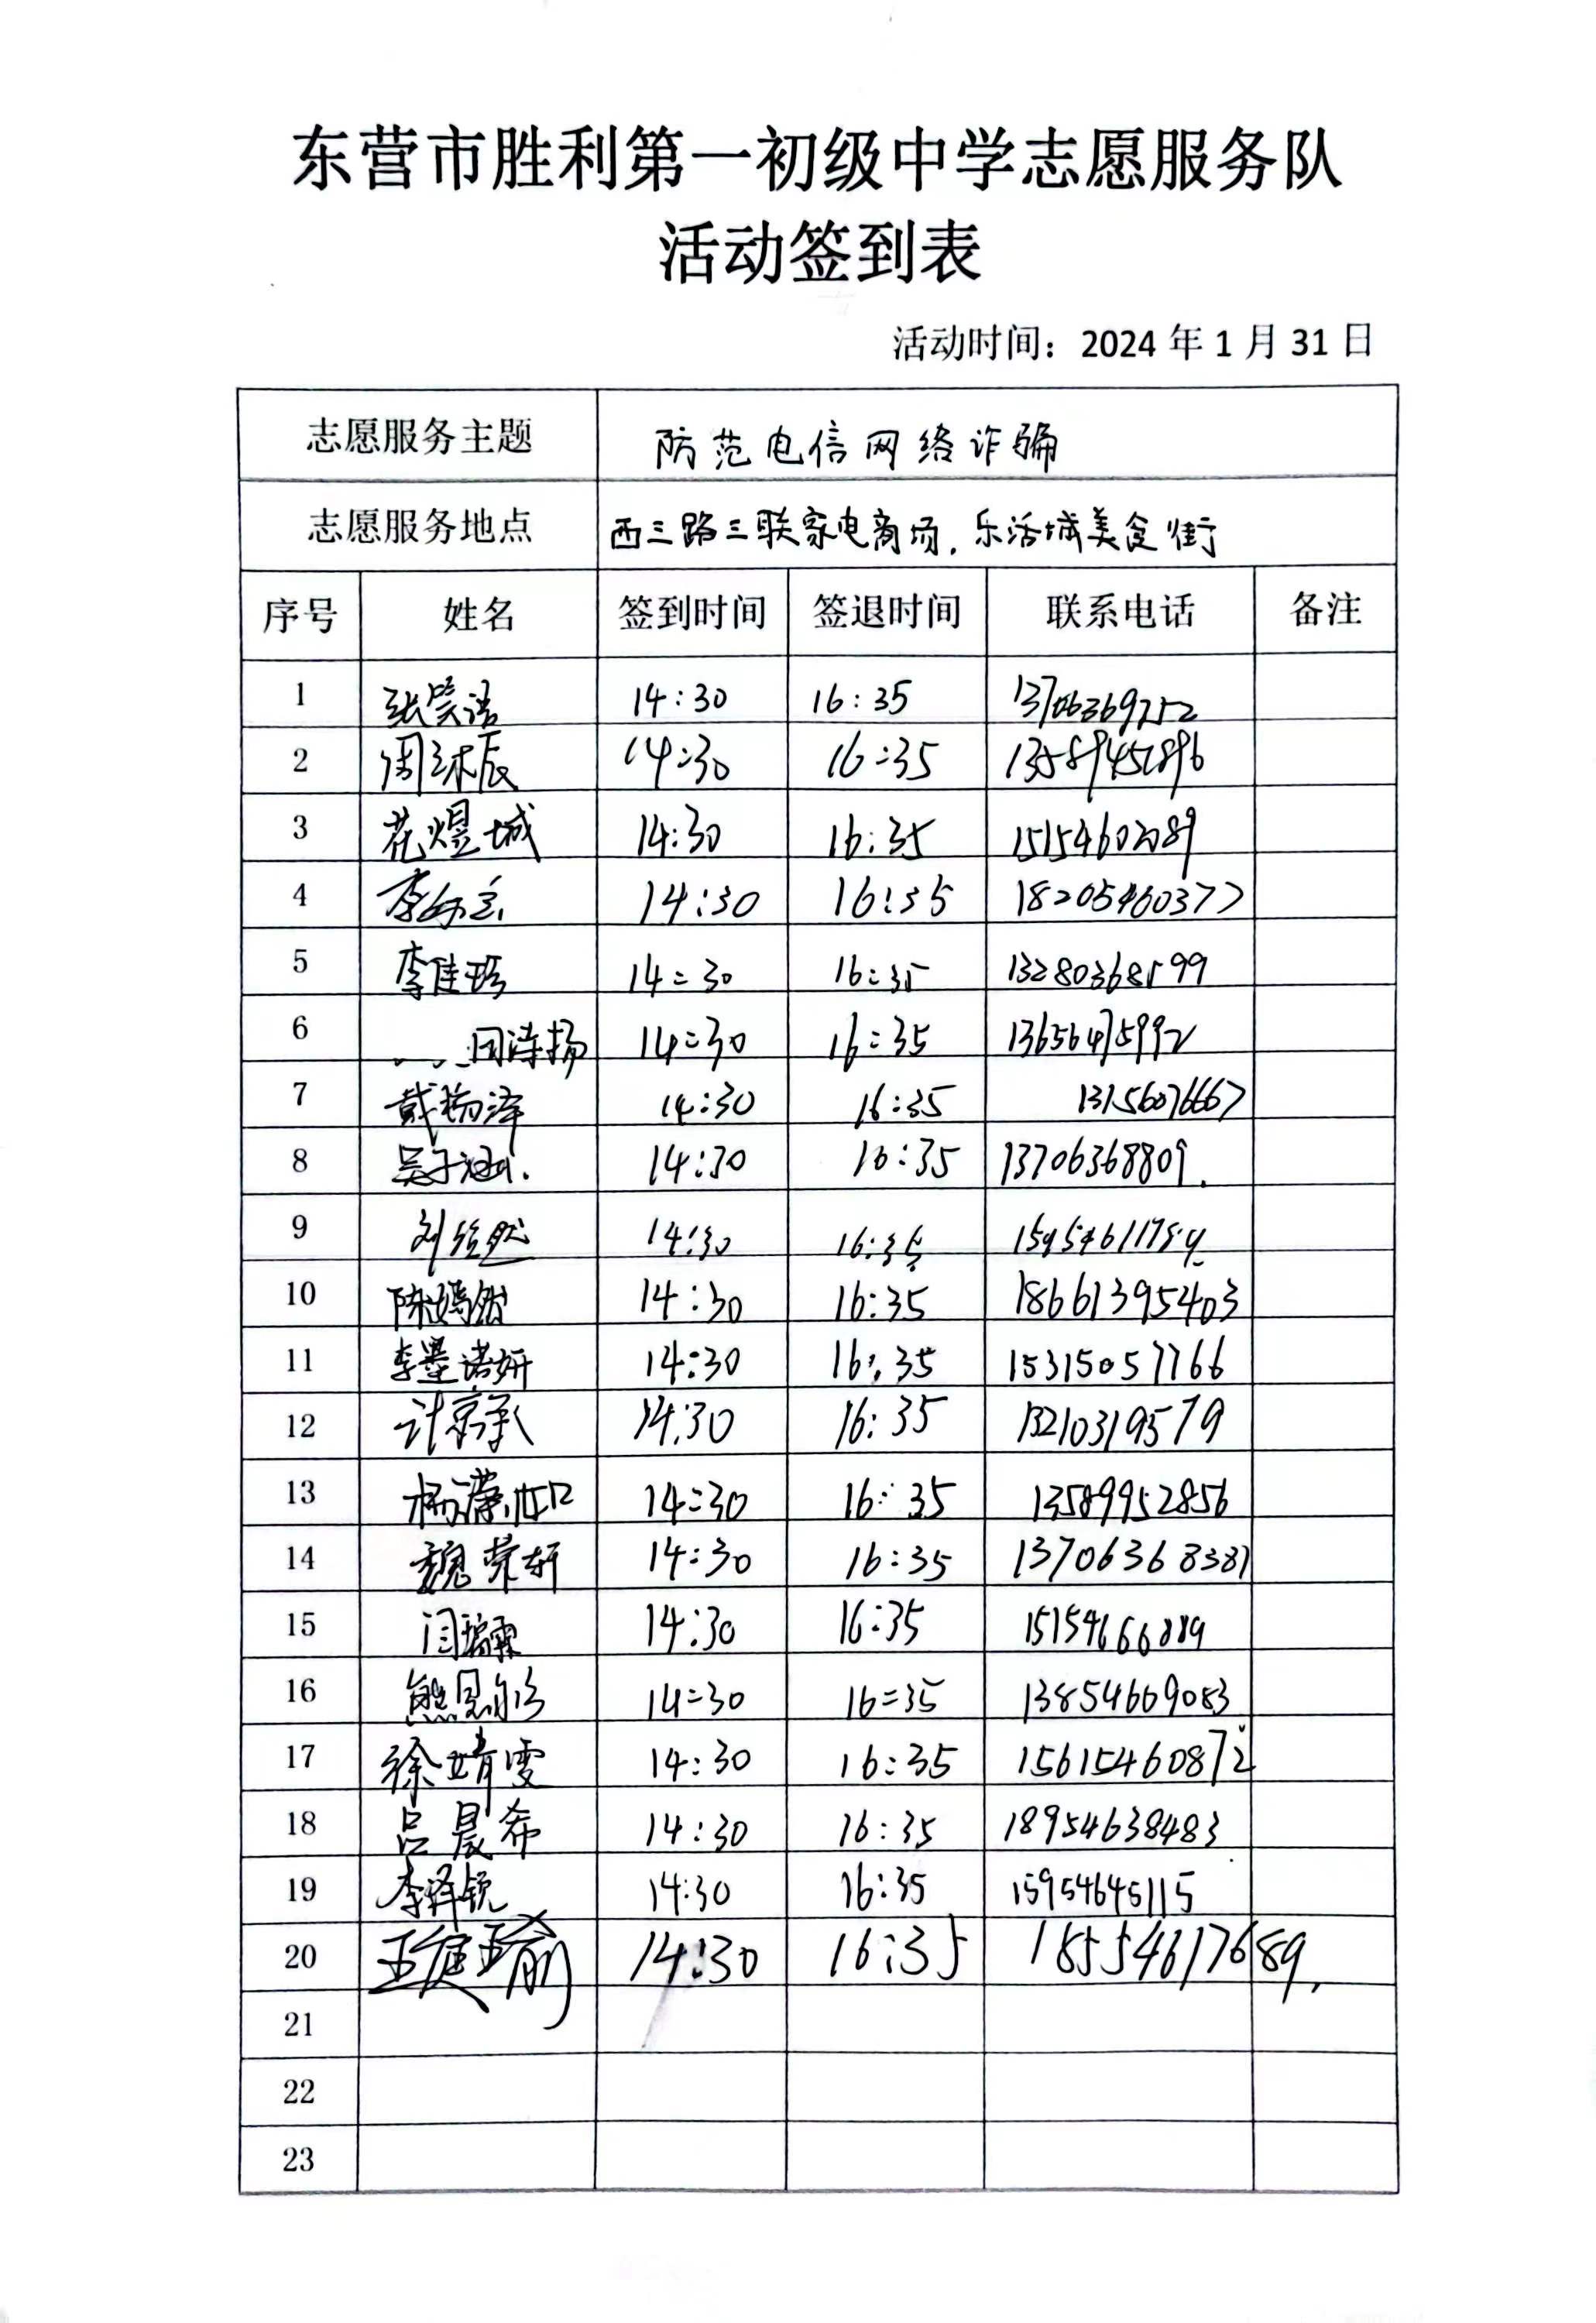 东营市胜利第一初级中学志愿服务队
活动签到表
活动时间：2024 年 1 月 31 日
志愿服务主题 防范电信网络诈骗
志愿服务地点 西三路三联家电商场，乐活城美食街
序号 姓名 签到时间 签退时间 联系电话 备注
1 张笑语 14:30 16:35 13706369252
2 14:30 16:35
3 花煜城 14:30 16:35
4 14:30 16:35 18205460377
5 李佳珍 14:30 16:35 13280368599
6 14:30 16:35 13656475992
7 戴杨泽 14:30 16:35 13156076667
8 吴子涵 14:30 16:35 13706368809
9 14:30 16:35
10 陈嫣然 14:30 16:35 18661395403
11 李墨诺妍 14:30 16:35 15315057766
12 计京承 14:30 16:35 13210319579
13 14:30 16:35 13589952856
14 魏荣轩 14:30 16:35 13706368387
15 闫瑞霖 14:30 16:35 15154666889
16 14:30 16:35 13854669083
17 徐靖雯 14:30 16:35 15615460872
18 吕晨希 14:30 16:35 18954638483
19 李泽锐 14:30 16:35 15954645115
20 14:30 16:35 18554617689
21
22
23